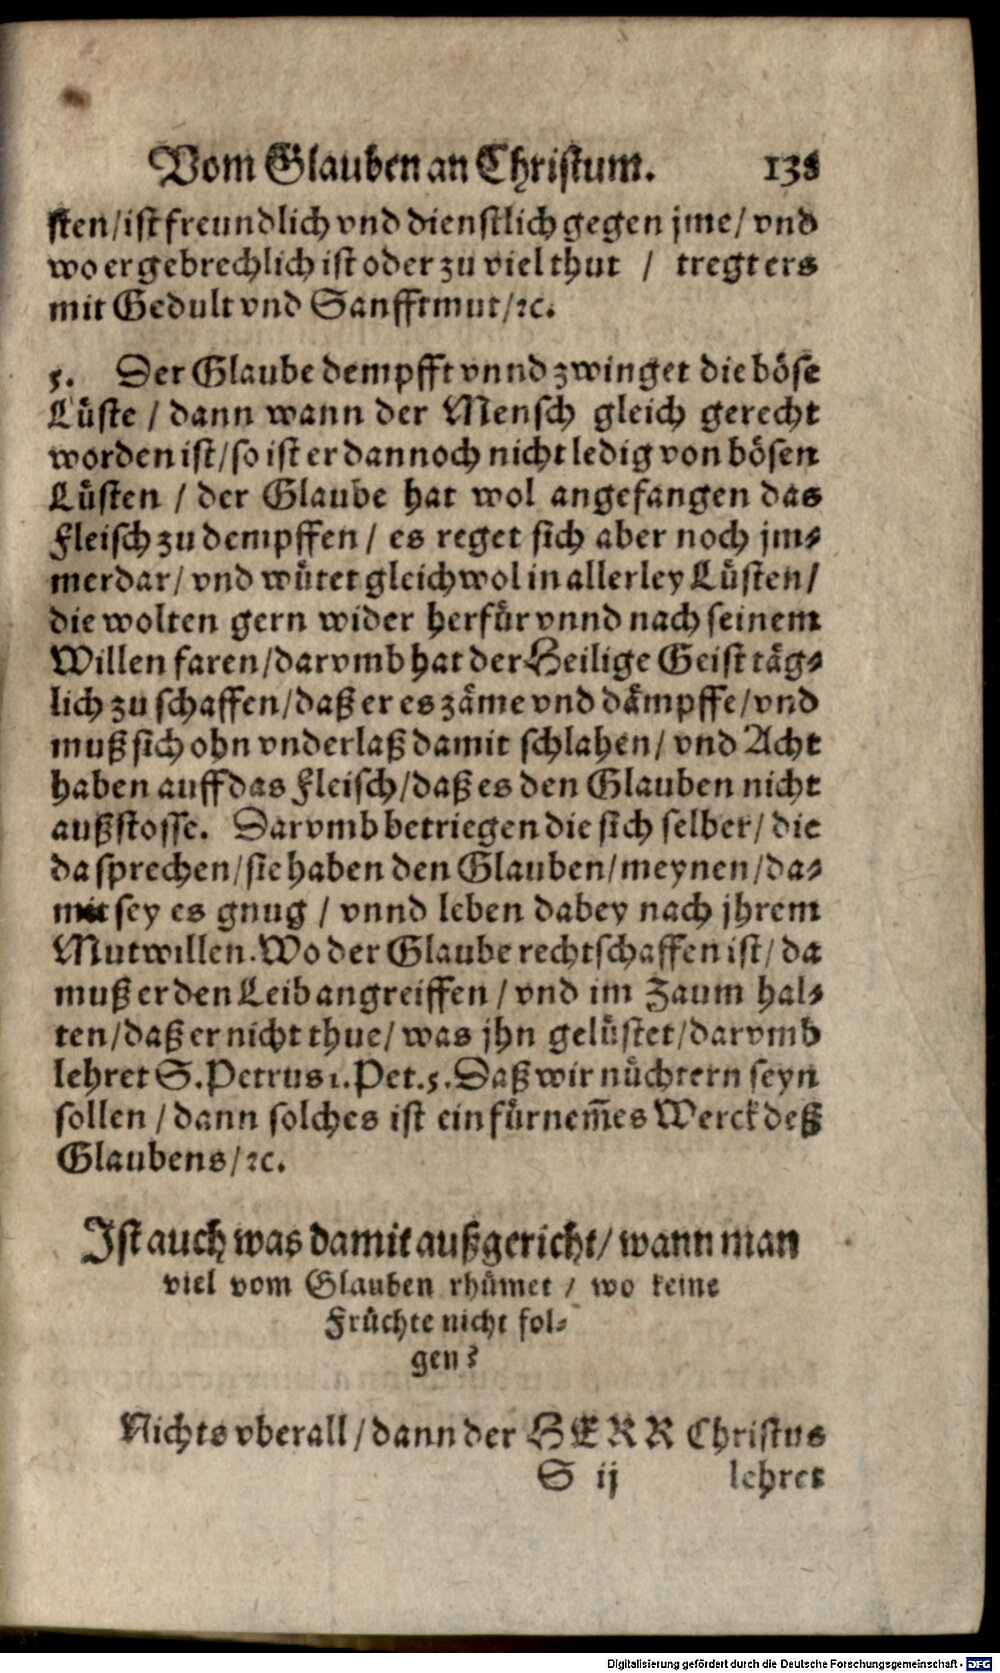 Vom Glauben an Christum. 138
sten/ist freundlich vnd dienstlich gegen jme/ vnd
wo er gebrechlich ist oder zu viel thut / tregt ers
mit Gedult vnd Sanfftmut/ꝛc.
5. Der Glaube dempfft vnnd zwinget die böse
Lüste / dann wann der Mensch gleich gerecht
worden ist/so ist er dannoch nicht ledig von bösen
Lüsten / der Glaube hat wol angefangen das
Fleisch zu dempffen / es reget sich aber noch jm⸗
merdar/ vnd wütet gleichwol in allerley Lüsten/
die wolten gern wider herfür vnnd nach seinem
Willen faren/darvmb hat der Heilige Geist täg⸗
lich zu schaffen/daß er es zäme vnd dämpffe/vnd
muß sich ohn vnderlaß damit schlahen/ vnd Acht
haben auff das Fleisch/daß es den Glauben nicht
außstosse. Darvmb betriegen die sich selber/ die
da sprechen/sie haben den Glauben/meynen/da⸗
mit sey es gnug / vnnd leben dabey nach jhrem
Mutwillen. Wo der Glaube rechtschaffen ist/ da
muß er den Leib angreiffen / vnd im Zaum hal⸗
ten/daß er nicht thue/ was jhn gelüstet/darvmb
lehret S. Petrus 1. Pet. 5. Daß wir nüchtern seyn
sollen / dann solches ist ein fürnem̃es Werck deß
Glaubens/ꝛc.
Ist auch was damit außgericht/ wann man
viel vom Glauben rhümet / wo keine
Früchte nicht fol⸗
gen?
Nichts vberall/dann der HERR Christus
S ij lehret
Digitalisierung gefördert durch die Deutsche Forschungsgemeinschaft - DFG